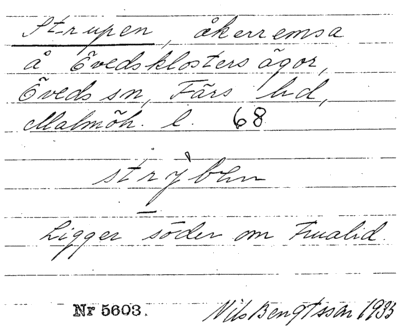 Strupen, åkerremsa
å Övedsklosters ägor,
Öveds sn, Färs hd,
Malmöh. l. 68
Ligger söder om Frualid.
Nr 5603.
Nils Bengtsson 1935